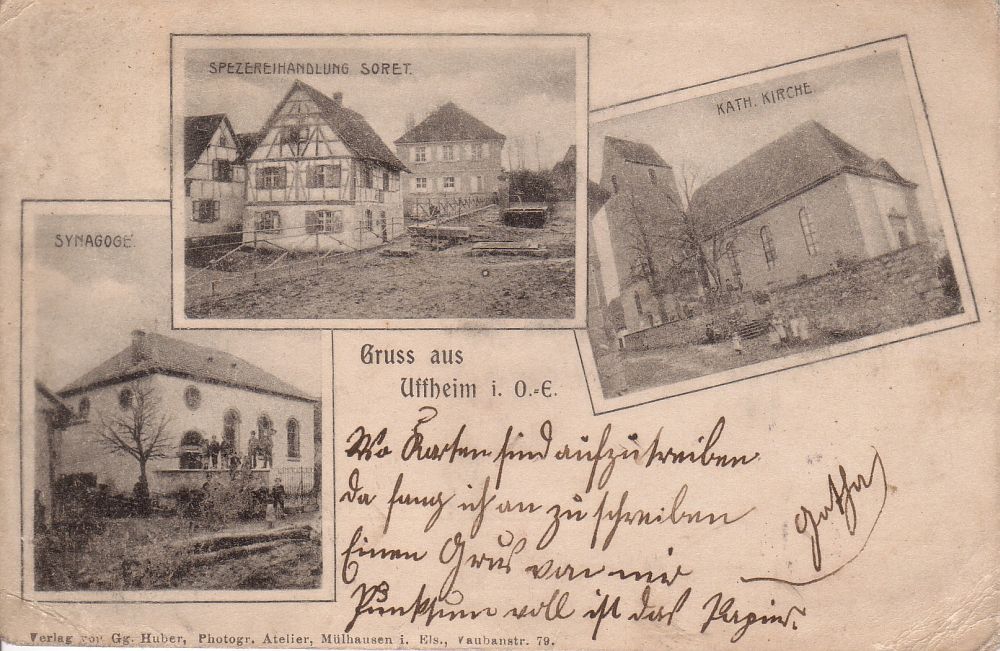 SPEZEREIHANDLUNG SORET.
KATH. KIRCHE.
SYNAGOGE.
Gruss aus
Uffheim i. O.-E.
Wo Karten sind aufzutreiben
da fang ich an zu schreiben
Einen Grus von mir
Punktum voll ist das Papier.
Verlag von Gg. Huber, Photogr. Atelier, Mülhausen i. Els., Vaubanstr. 79.